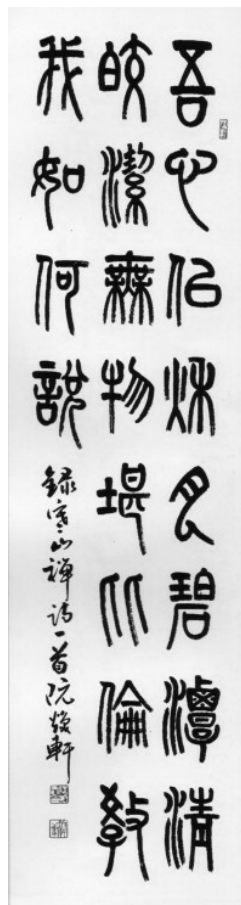 吾心似秋月碧潭清
皎潔無物堪比倫教
我如何說
録寒山禅詩一首阮軒